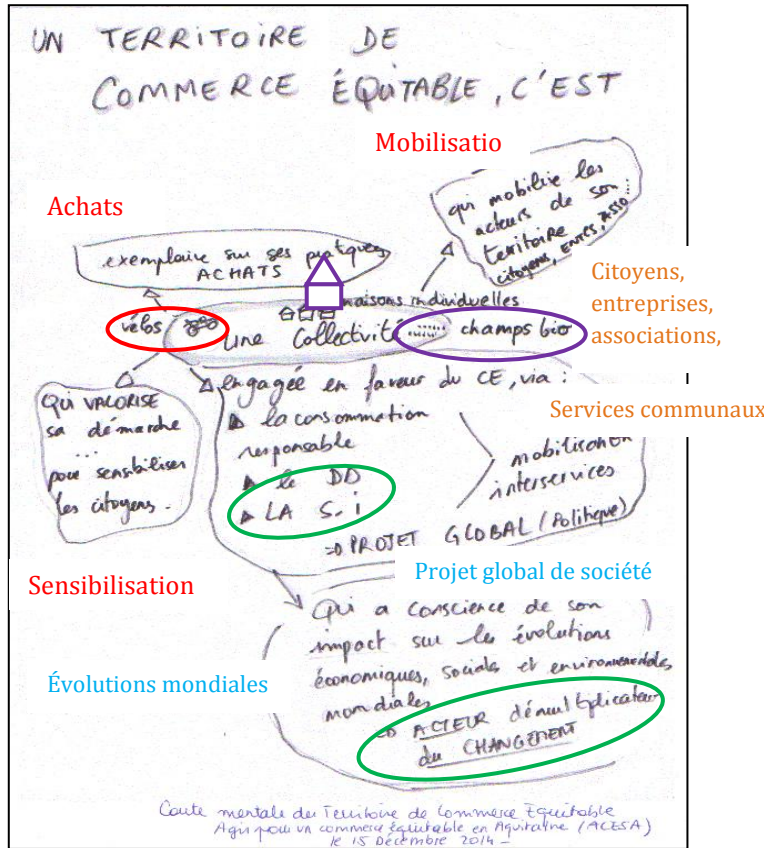 UN TERRITOIRE DE
COMMERCE ÉQUITABLE, C'EST
Mobilisatio
Achats
qui mobilise les
acteurs de son
territoire
citoyens, ENTRES, ASSO...
exemplaire sur ses pratiques
ACHATS
Citoyens,
entreprises,
associations,
maisons individuelles
vélos
Une Collectivité
champs bio
Qui VALORISE
sa démarche
...
pour sensibiliser
les citoyens.
engagée en faveur du CE, via :
la consommation
responsable
le DD
LA S.i
mobilisation
interservices
=> PROJET GLOBAL (Politique)
Services communaux
Sensibilisation
Projet global de société
Qui a conscience de son
impact sur les évolutions
économiques, sociales et environnementales
mondiales
=> ACTEUR démultiplicateur
du CHANGEMENT
Évolutions mondiales
Carte mentale du Territoire de Commerce Equitable
Agir pour un commerce équitable en Aquitaine (ACESA)
le 15 Décembre 2014 -